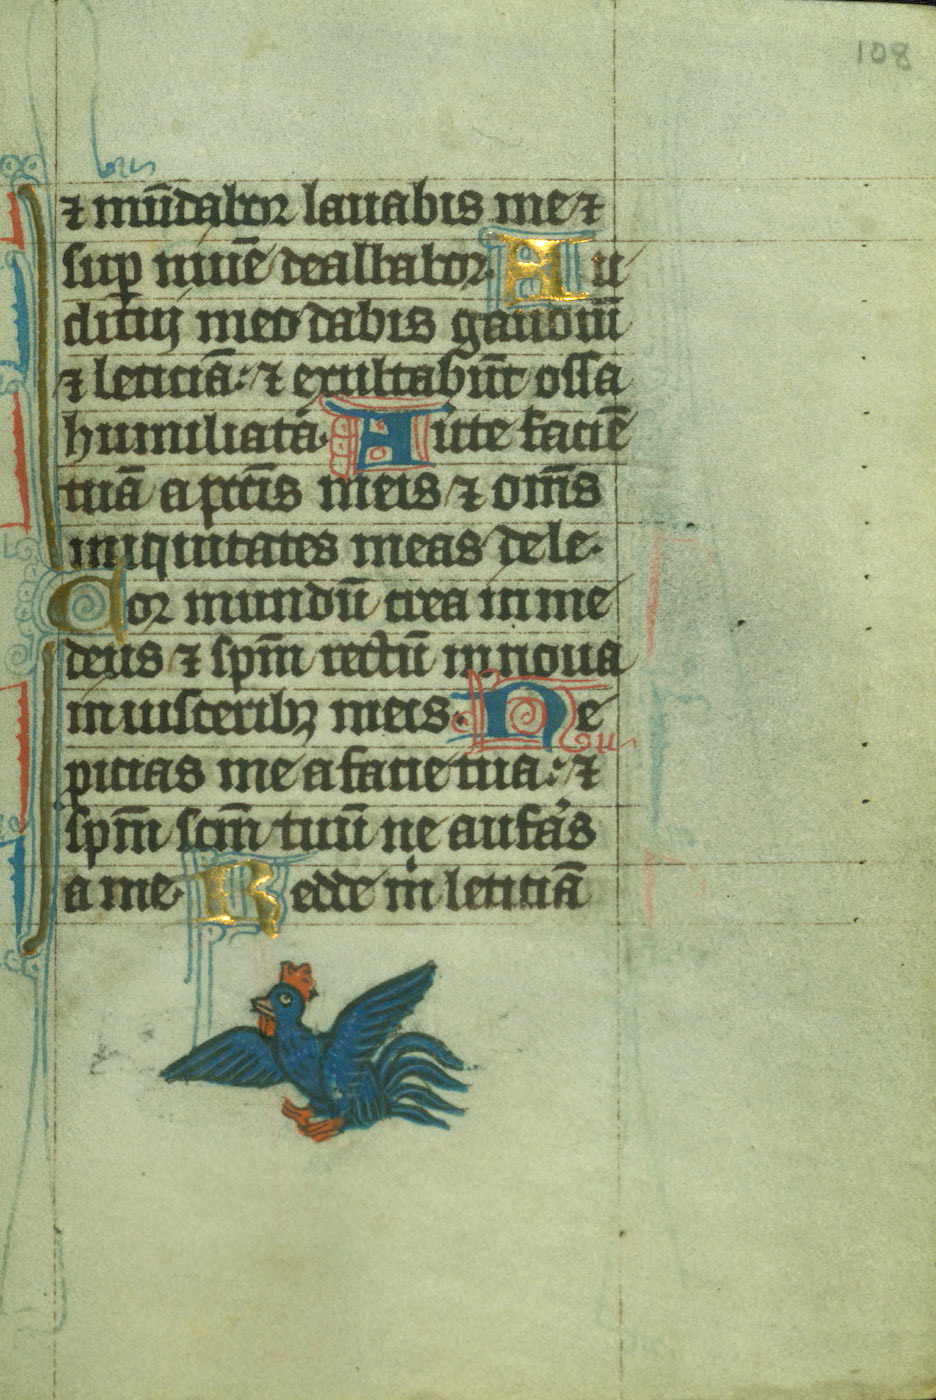 108
⁊ mūdabor lauabis me ⁊
sup̱ niuē dealbabor. Au
ditui meo dabis gaudiū
⁊ leticiā: ⁊ exultabūt ossa
humiliata. Auerte faciē
tuā a pctīs meis ⁊ om̄s
iniquitates meas dele.
Cor mundū crea in me
deus ⁊ spm̄ rectū innoua
in uisceribꝫ meis. Ne
ꝓicias me a facie tua: ⁊
spm̄ scm̄ tuū ne aufer̄as
a me. Redde m̍ leticiā